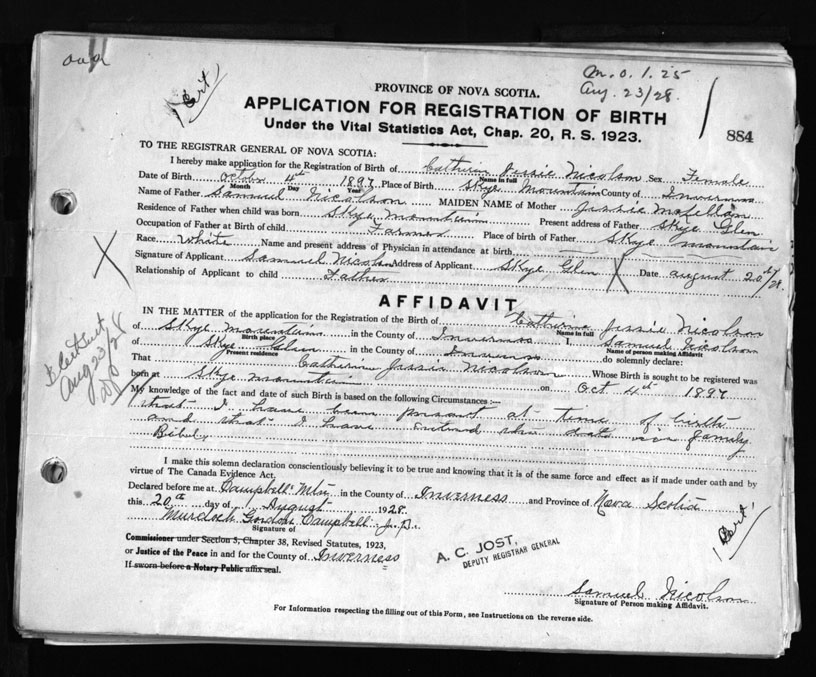 M.O. 1.25
PROVINCE OF NOVA SCOTIA. Aug. 23/28.
1 Cert
APPLICATION FOR REGISTRATION OF BIRTH
884
Under the Vital Statistics Act, Chap. 20, R. S. 1923.
TO THE REGISTRAR GENERAL OF NOVA SCOTIA:
I hereby make application for the Registration of Birth of Catherine Jessie Nicolson Sex Female
Name in full
Date of Birth October 4th 1897 Place of Birth Skye Mountain County of Inverness
Month Day Year
Name of Father Samuel Nicolson MAIDEN NAME of Mother Jessie McLellan
Residence of Father when child was born Skye Mountain Present address of Father Skye Glen
Occupation of Father at Birth of child Farmer Place of birth of Father Skye Mountain
Race White Name and present address of Physician in attendance at birth
Signature of Applicant Samuel Nicolson Address of Applicant Skye Glen Date August 20th/28.
Relationship of Applicant to child Father
AFFIDAVIT
IN THE MATTER of the application for the Registration of the Birth of Catherine Jessie Nicolson
Name in full
of Skye Mountain in the County of Inverness I, Samuel Nicolson
Birth place Name of person making Affidavit
of Skye Glen in the County of Inverness do solemnly declare:
Present residence
That Catherine Jessie Nicolson Whose Birth is sought to be registered was
born at Skye Mountain on Oct 4th 1897
My knowledge of the fact and date of such Birth is based on the following Circumstances :—
that I have been present at time of birth
and that I have the date in family
Aug 23/28
I make this solemn declaration conscientiously believing it to be true and knowing that it is of the same force and effect as if made under oath and by
virtue of The Canada Evidence Act.
Declared before me at Campbell's Mtn in the County of Inverness and Province of Nova Scotia
this 20th day of August 1928.
Murdoch Gordon Campbell J.P.
Signature of
Commissioner under Section 3, Chapter 38, Revised Statutes, 1923,
or Justice of the Peace in and for the County of Inverness
If sworn before a Notary Public affix seal.
A. C. JOST,
DEPUTY REGISTRAR GENERAL
1 Cert
Samuel Nicolson
Signature of Person making Affidavit.
For Information respecting the filling out of this Form, see Instructions on the reverse side.